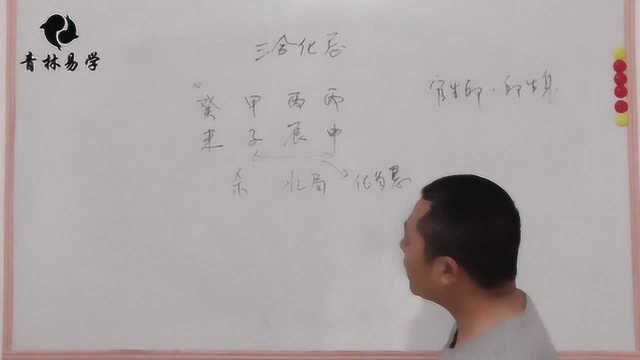 青林易学
三合化忌
癸 甲 丙 丙
未 子 辰 申
官生印·印生身
杀 水局 化为忌